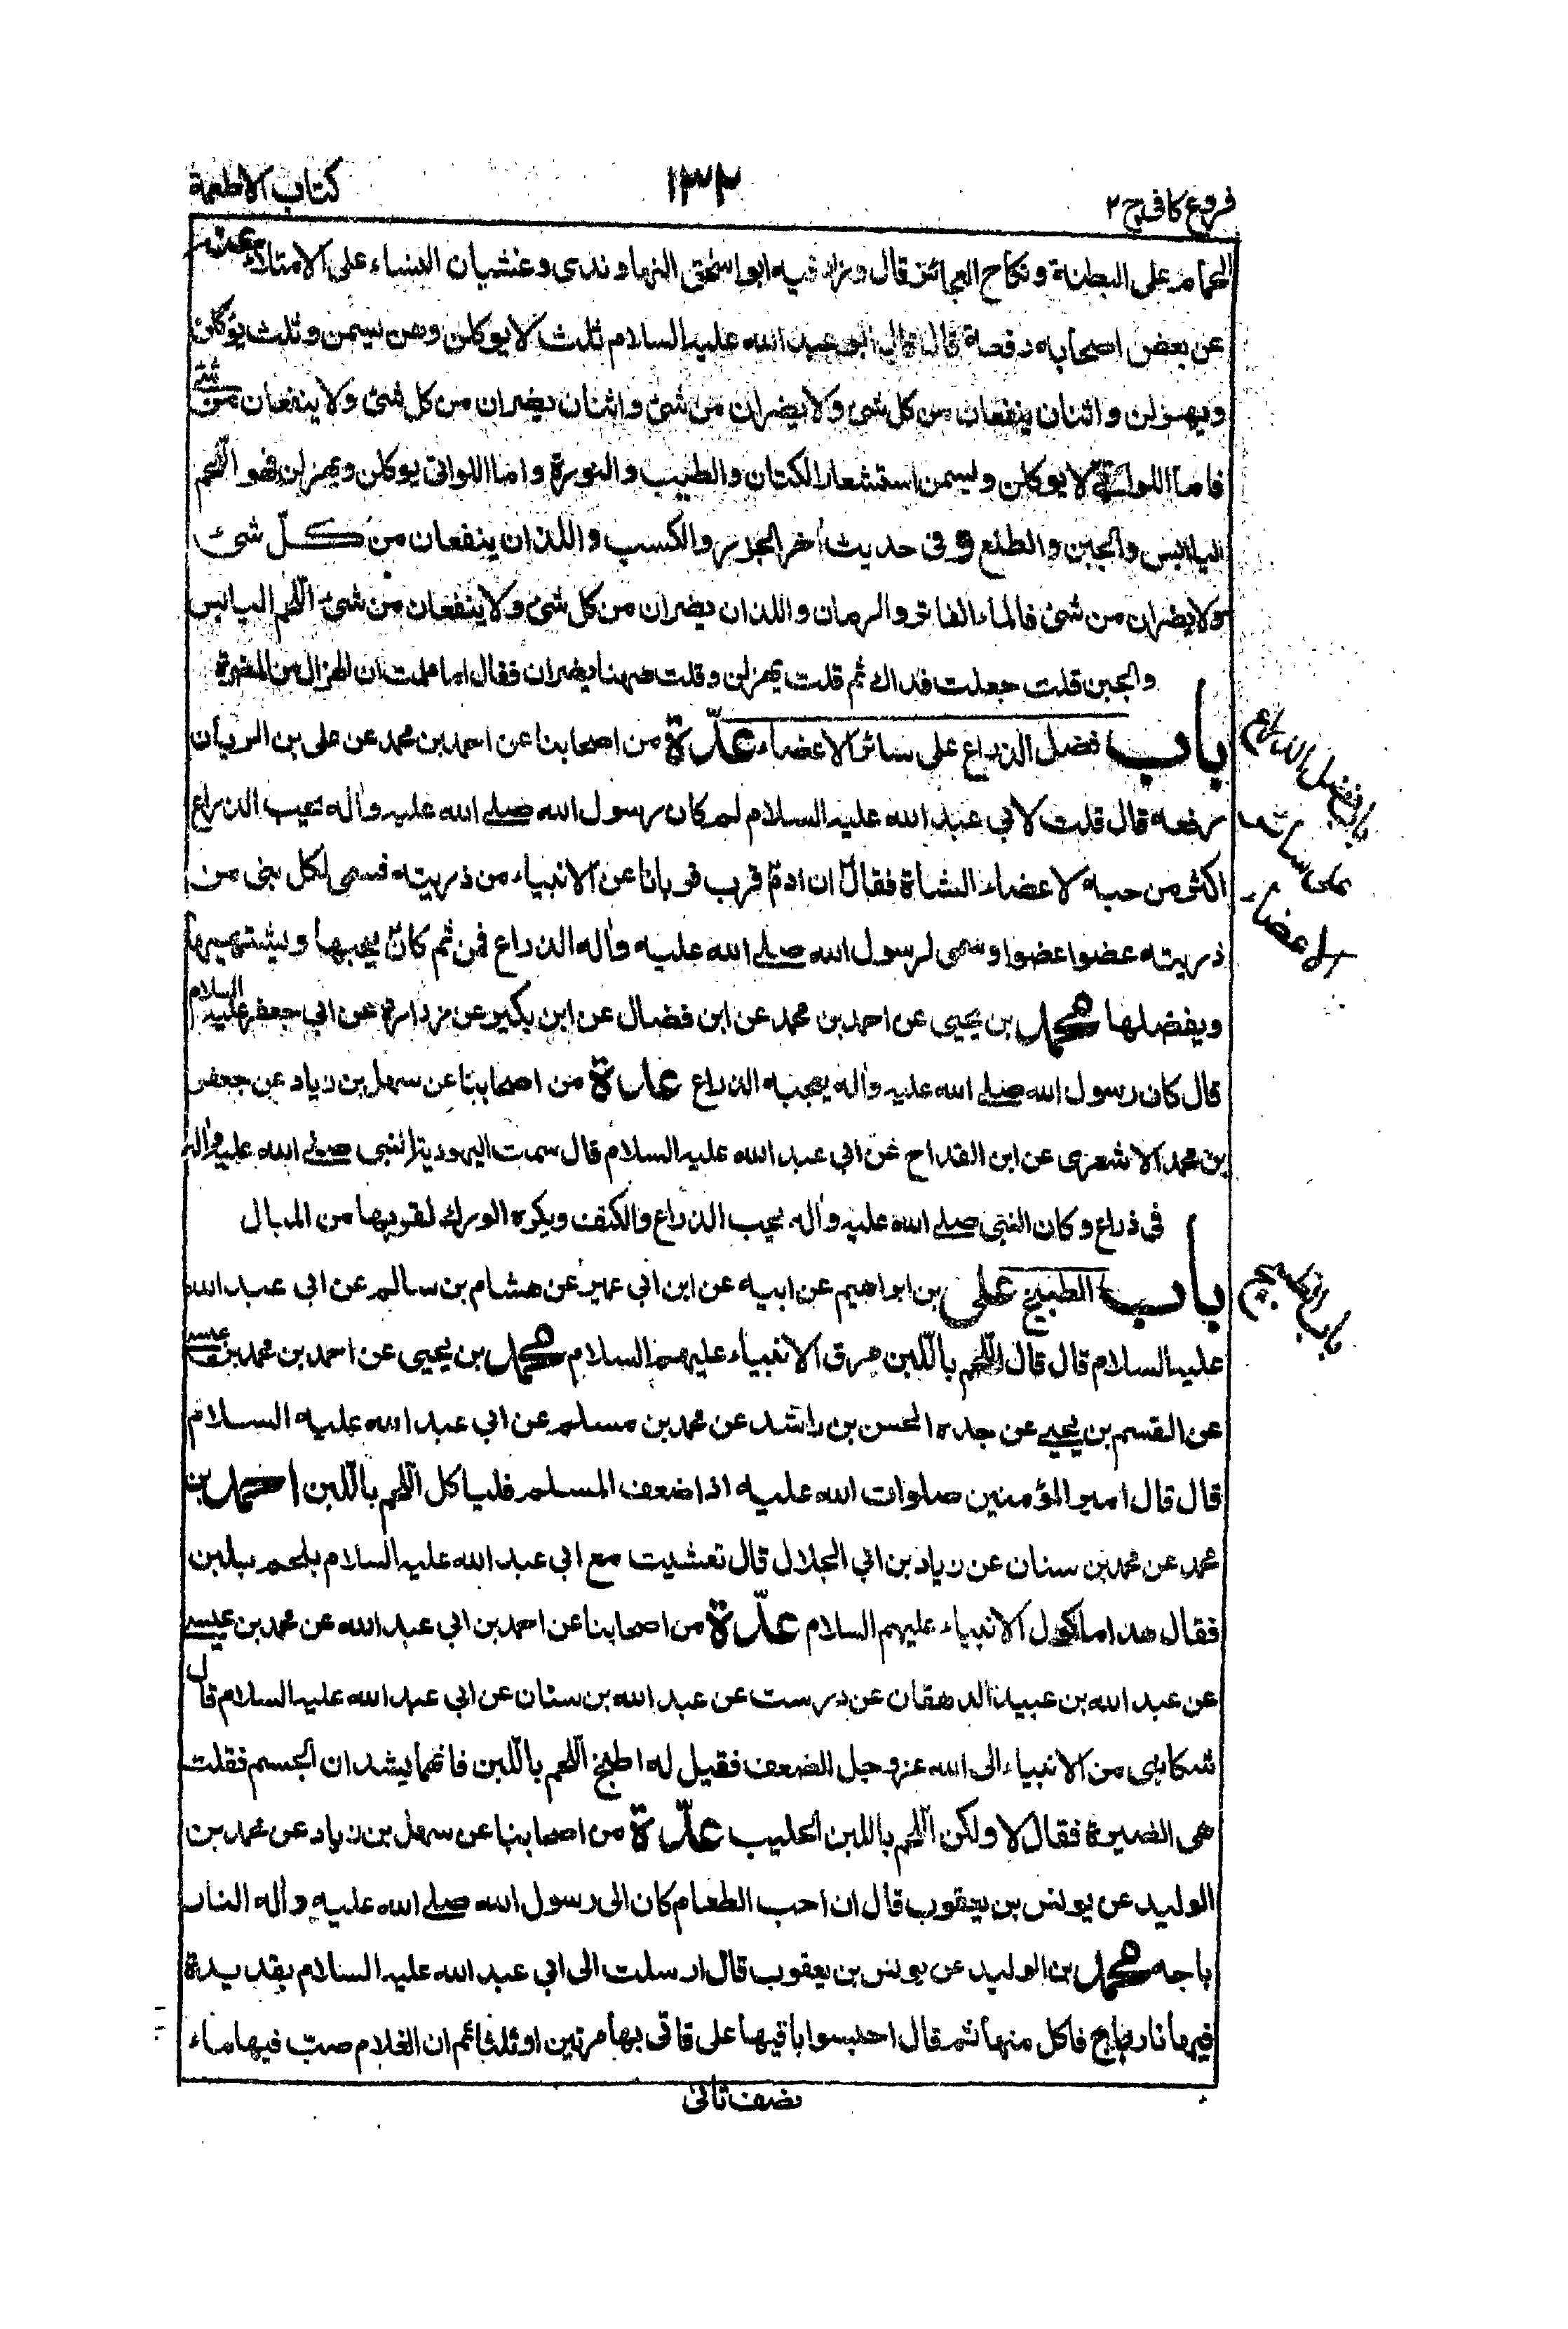 فروع كافي ج ٢
١٣٢
كتاب الاطعمة
الحمام على البطنة ونكاح العجائز قال وزاد فيه ابو اسحق النهاوندى وغشيان النساء على الامتلاء عنه
عن بعض اصحابه رفعه قال قال ابو عبد الله عليه السلام ثلث لا يوكلن وهن يسمن وثلث يوكلن
ويهزلن واثنان ينفعان من كل شئ ولا يضران من شئ واثنان يضران من كل شئ ولا ينفعان من شئ
فاما اللواتى لا يوكلن ويسمن استشعار الكتان والطيب والنورة واما اللواتى يوكلن ويهزلن فهو اللحم
اليابس والجبن والطلع وفى حديث أخر الجزر والكسب واللذان ينفعان من كلّ شئ
ولا يضران من شئ فالماء الفاتر والرمان واللذان يضران من كل شئ ولا ينفعان من شئ اللحم اليابس
والجبن قلت جعلت فداك ثم قلت يهزلن وقلت ههنا يضران فقال اما علمت ان الهزال من المضرة
باب فضل الذراع على سائر الاعضاء عدّة من اصحابنا عن احمد بن محمد عن على بن الريان
رفعه قال قلت لابي عبد الله عليه السلام لم كان رسول الله صلى الله عليه وأله يحب الذراع
اكثر من حبه لاعضاء الشاة فقال ان ادم قرب قربانا عن الانبياء من ذريته فسمى لكل نبى من
ذريته عضوا عضوا وسمى لرسول الله صلى الله عليه وأله الذراع فمن ثم كان يحبها ويشتهيها
ويفضلها محمد بن يحيى عن احمد بن محمد عن ابن فضال عن ابن بكير عن زرارة عن ابي جعفر عليه السلام
قال كان رسول الله صلى الله عليه وأله يعجبه الذراع عدة من اصحابنا عن سهل بن زياد عن جعفر
بن محمد الاشعرى عن ابن القداح عن ابي عبد الله عليه السلام قال سمت اليهودية النبى صلى الله عليه وأله
فى ذراع وكان النبى صلى الله عليه وأله يحب الذراع والكتف ويكره الورك لقربها من المبال
باب الطبيخ على بن ابراهيم عن ابيه عن ابن ابي عمير عن هشام بن سالم عن ابي عبد الله
عليه السلام قال قال اللحم باللّبن مرق الانبياء عليهم السلام محمد بن يحيى عن احمد بن محمد بن عيسى
عن القسم بن يحيى عن جده الحسن بن راشد عن محمد بن مسلم عن ابي عبد الله عليه السلام
قال قال امير المؤمنين صلوات الله عليه اذا ضعف المسلم فلياكل اللّحم باللّبن احمد بن
محمد عن محمد بن سنان عن زياد بن ابي الجلال قال تعشيت مع ابي عبد الله عليه السلام بلحم بلبن
فقال هذا ماكول الانبياء عليهم السلام عدّة من اصحابنا عن احمد بن ابي عبد الله عن محمد بن عيسى
عن عبد الله بن عبيد الدهقان عن درست عن عبد الله بن سنان عن ابي عبد الله عليه السلام قال
شكا نبى من الانبياء الى الله عز وجل الضعف فقيل له اطبخ اللّحم باللّبن فانهما يشدان الجسم فقلت
هى المضيرة فقال لا ولكن اللّحم باللبن الحليب عدّة من اصحابنا عن سهل بن زياد عن محمد بن
الوليد عن يونس بن يعقوب قال ان احب الطعام كان الى رسول الله صلى الله عليه وأله النار
باجه محمد بن الوليد عن يونس بن يعقوب قال ارسلت الى ابي عبد الله عليه السلام بقديدة
فيها نارباج فاكل منها ثم قال احبسوا باقيها على فاتى بها مرتين او ثلثا ثم ان الغلام صبّ فيها ماء
نصف ثانى
باب فضل الذراع
على سائر
الاعضاء
باب الطبيخ